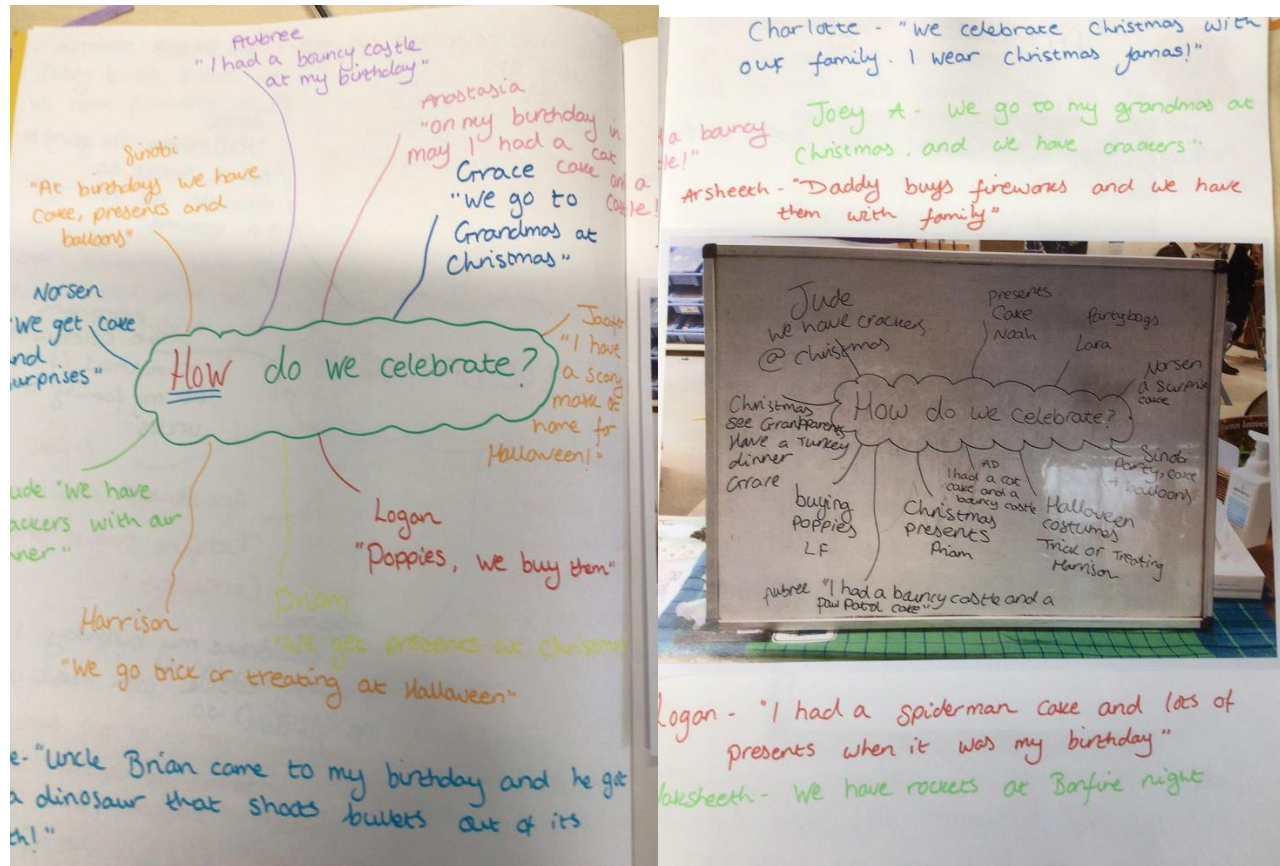 Aubree
"I had a bouncy castle
at my birthday"
Anastasia
"on my birthday in
may I had a cat
cake and a
castle!
Sinobi
"At birthdays we have
cake, presents and
balloons"
Grace
"we go to
Grandmas at
Christmas"
Norsen
"we get cake
nd
urprises"
"I have
a scary
mask at
home for
Halloween!"
How do we celebrate?
ude "we have
ackers with our
ner"
Logan
"Poppies, we buy them"
Harrison
"We go trick or treating at Halloween"
Priam
"We get presents at Christmas
e- "Uncle Brian came to my birthday and he got
a dinosaur that shoots bullets out of its
th!"
Charlotte - "We celebrate Christmas with
our family. I wear Christmas jamas!"
Joey A - We go to my grandmas at
Christmas. and we have crackers"
d a bouncy
tle!"
Arsheeth - "Daddy buys fireworks and we have
them with family"
Jude
we have crackers
@ Christmas
Presents
Cake
Noah
Partybags
Lara
Norsen
a surprise
cake
How do we celebrate?
Christmas
see Grandparents
Have a Turkey
dinner
Grace
buying
poppies
LF
Christmas
presents
Priam
AD
I had a cat
cake and a
bouncy castle
Halloween
costumes
Trick or Treating
Harrison
Sinobi
Party, cake
+ balloons
Aubree "I had a bouncy castle and a
Paw Patrol cake"
Logan - "I had a spiderman cake and lots of
presents when it was my birthday"
aksheeth - We have rockets at Bonfire night